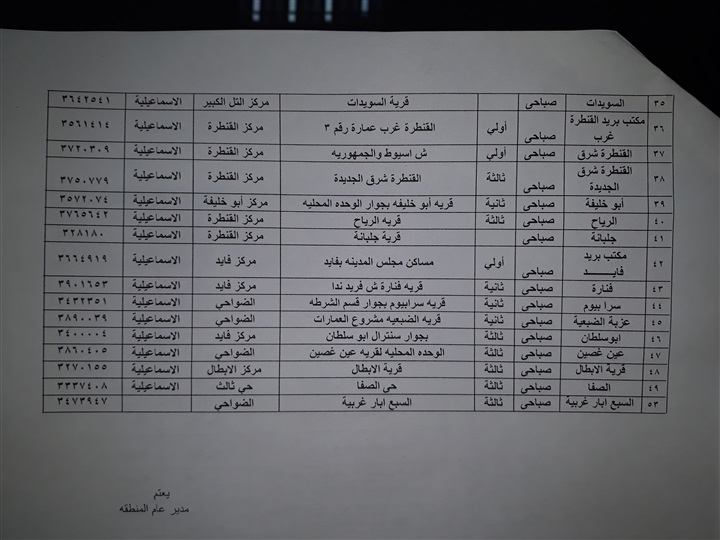 ٣٥ السويدات صباحى قرية السويدات مركز التل الكبير الاسماعيلية ٣٦٤٢٥٤١
٣٦ مكتب بريد القنطرة غرب صباحى أولي القنطرة غرب عمارة رقم ٣ مركز القنطرة الاسماعيلية ٣٥٦١٤١٤
٣٧ القنطرة شرق صباحى أولي ش اسيوط والجمهوريه مركز القنطرة الاسماعيلية ٣٧٢٠٣٠٩
٣٨ القنطرة شرق الجديدة صباحى ثالثة القنطرة شرق الجديدة مركز القنطرة الاسماعيلية ٣٧٥٠٧٧٩
٣٩ أبو خليفة صباحى ثانية قريه أبو خليفه بجوار الوحده المحليه مركز أبو خليفة الاسماعيلية ٣٥٧٢٠٧٤
٤٠ الرياح صباحى ثالثة قريه الرياح مركز القنطرة الاسماعيلية ٣٧٦٥٦٤٢
٤١ جلبانة صباحى قرية جلبانة مركز القنطرة الاسماعيلية ٣٢٨١٨٠
٤٢ مكتب بريد فايــــــد صباحى أولي مساكن مجلس المدينه بفايد مركز فايد الاسماعيلية ٣٦٦٤٩١٩
٤٣ فنارة صباحى ثانية قريه فنارة ش فريد ندا مركز فايد الاسماعيلية ٣٩٠١٦٥٣
٤٤ سرا بيوم صباحى ثانية قريه سرابيوم بجوار قسم الشرطه الضواحي الاسماعيلية ٣٤٣٢٣٥١
٤٥ عزبة الضبعية صباحى ثانية قريه الضبعيه مشروع العمارات الضواحي الاسماعيلية ٣٨٩٠٠٣٩
٤٦ ابوسلطان صباحى ثالثة بجوار سنترال ابو سلطان مركز فايد الاسماعيلية ٣٤٠٠٠٠٤
٤٧ عين غصين صباحى ثالثة الوحده المحليه لقريه عين غصين الضواحي الاسماعيلية ٣٨٦٠٤٠٥
٤٨ قرية الابطال صباحى ثالثة قرية الابطال مركز الابطال الاسماعيلية ٣٢٧٠١٥٥
٤٩ الصفا صباحى ثالثة حى الصفا حي ثالث الاسماعيلية ٣٣٣٧٤٠٨
٥٣ السبع ابار غربية صباحى ثالثة السبع ابار غربية الضواحي ٣٤٧٣٩٤٧
يعتم
مدير عام المنطقه